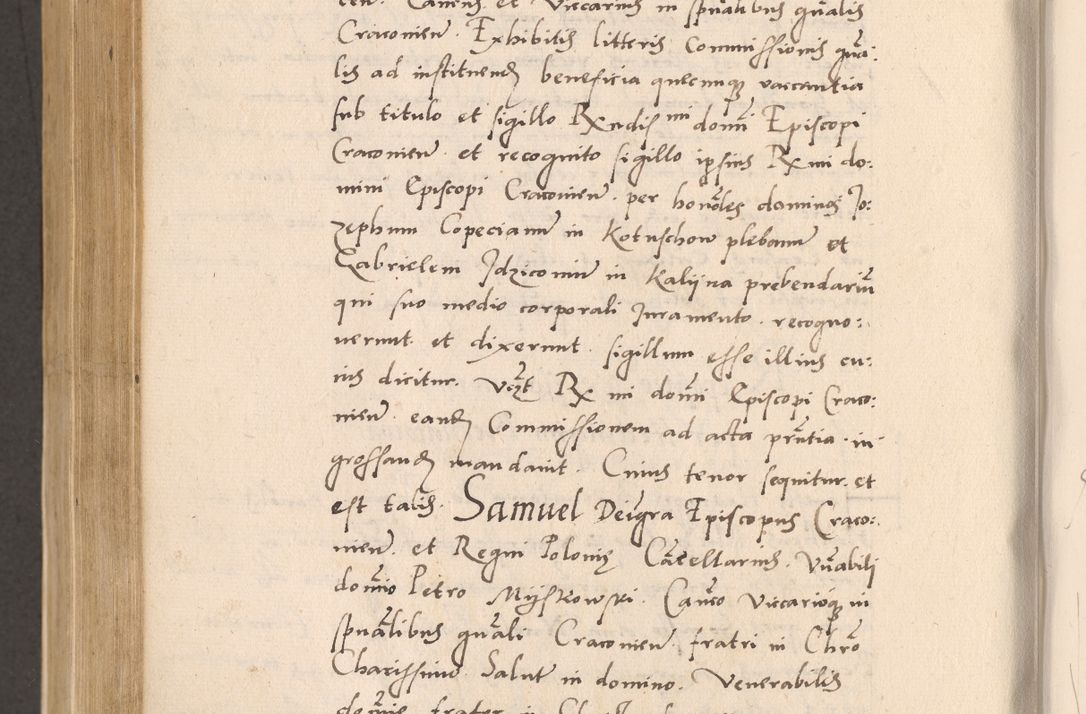 cen. Cancūs et Vicarius in sp̄ualibus gn̄alis
Cracovien̄. Exhibitis litteris commissionis gn̄a:
lis ad instituend̄ beneficia quecunq̨ vaccantia
sub titulo et sigillo Rx̄ndiss mi domī Episcopi
Cracovien̄. et recognito sigillo ipsius Rx mi do:
mini Episcopi Cracovien̄. per honōles dominos Jo:
zephum Copecianū in Kotuschow plebanū et
Gabrielem Jdziconiū in Kalijna prebendariū
qui suo medio corporali Juramento. recogno:
verunt et dixerunt. sigillum esse illius cu:
ius dicitur. Vczt̄ Rx mi domī Episcopi Craco:
vien̄. eand̄ Commissionem ad acta pn̄tia. in
grossand̄ mandavit. Cuius tenor sequitur. et
est talis. Samuel Dei gra Episcopus Craco:
vien̄. et Regni Polonię Cācellarius. Vn̄abili
domīo Petro Mijskowski. Canco Vicarioq̨ in
sp̄ualibus gn̄ali Cracovien̄. fratri in Chrō
Charissimo Salutē in domino. Venerabilis
domīe frater in